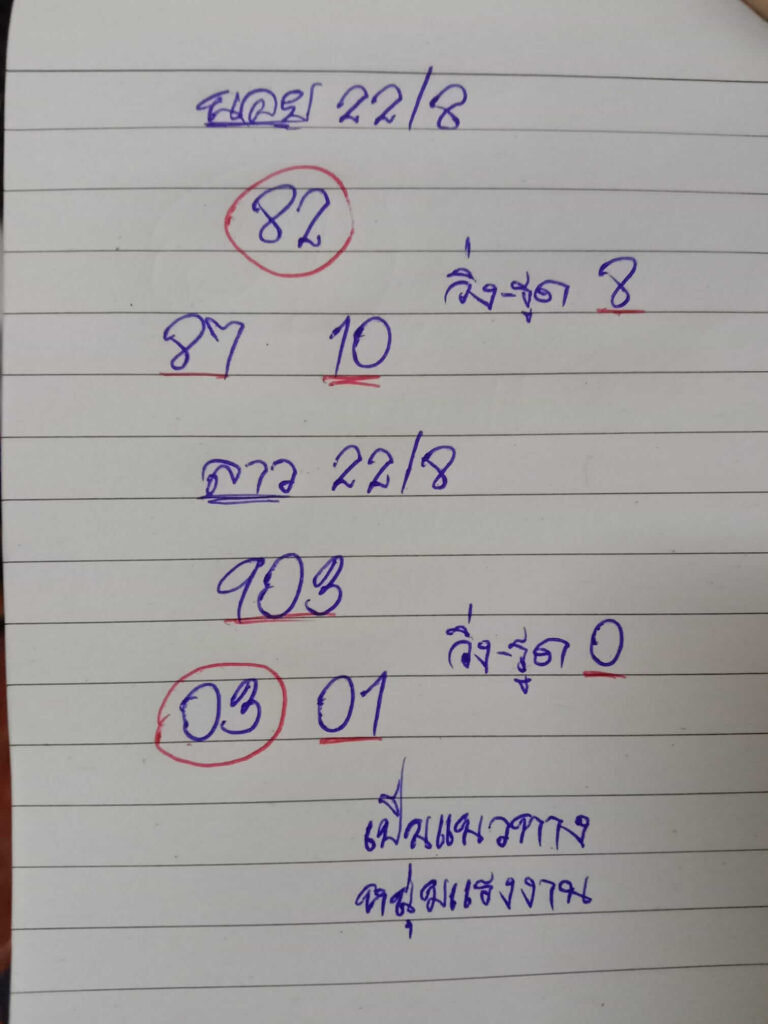 นอย 22/8
82
วิ่ง-รูด 8
87 10
ลาว 22/8
903
วิ่ง-รูด 0
03 01
เป็นแนวทาง
หนุ่มแรงงาน